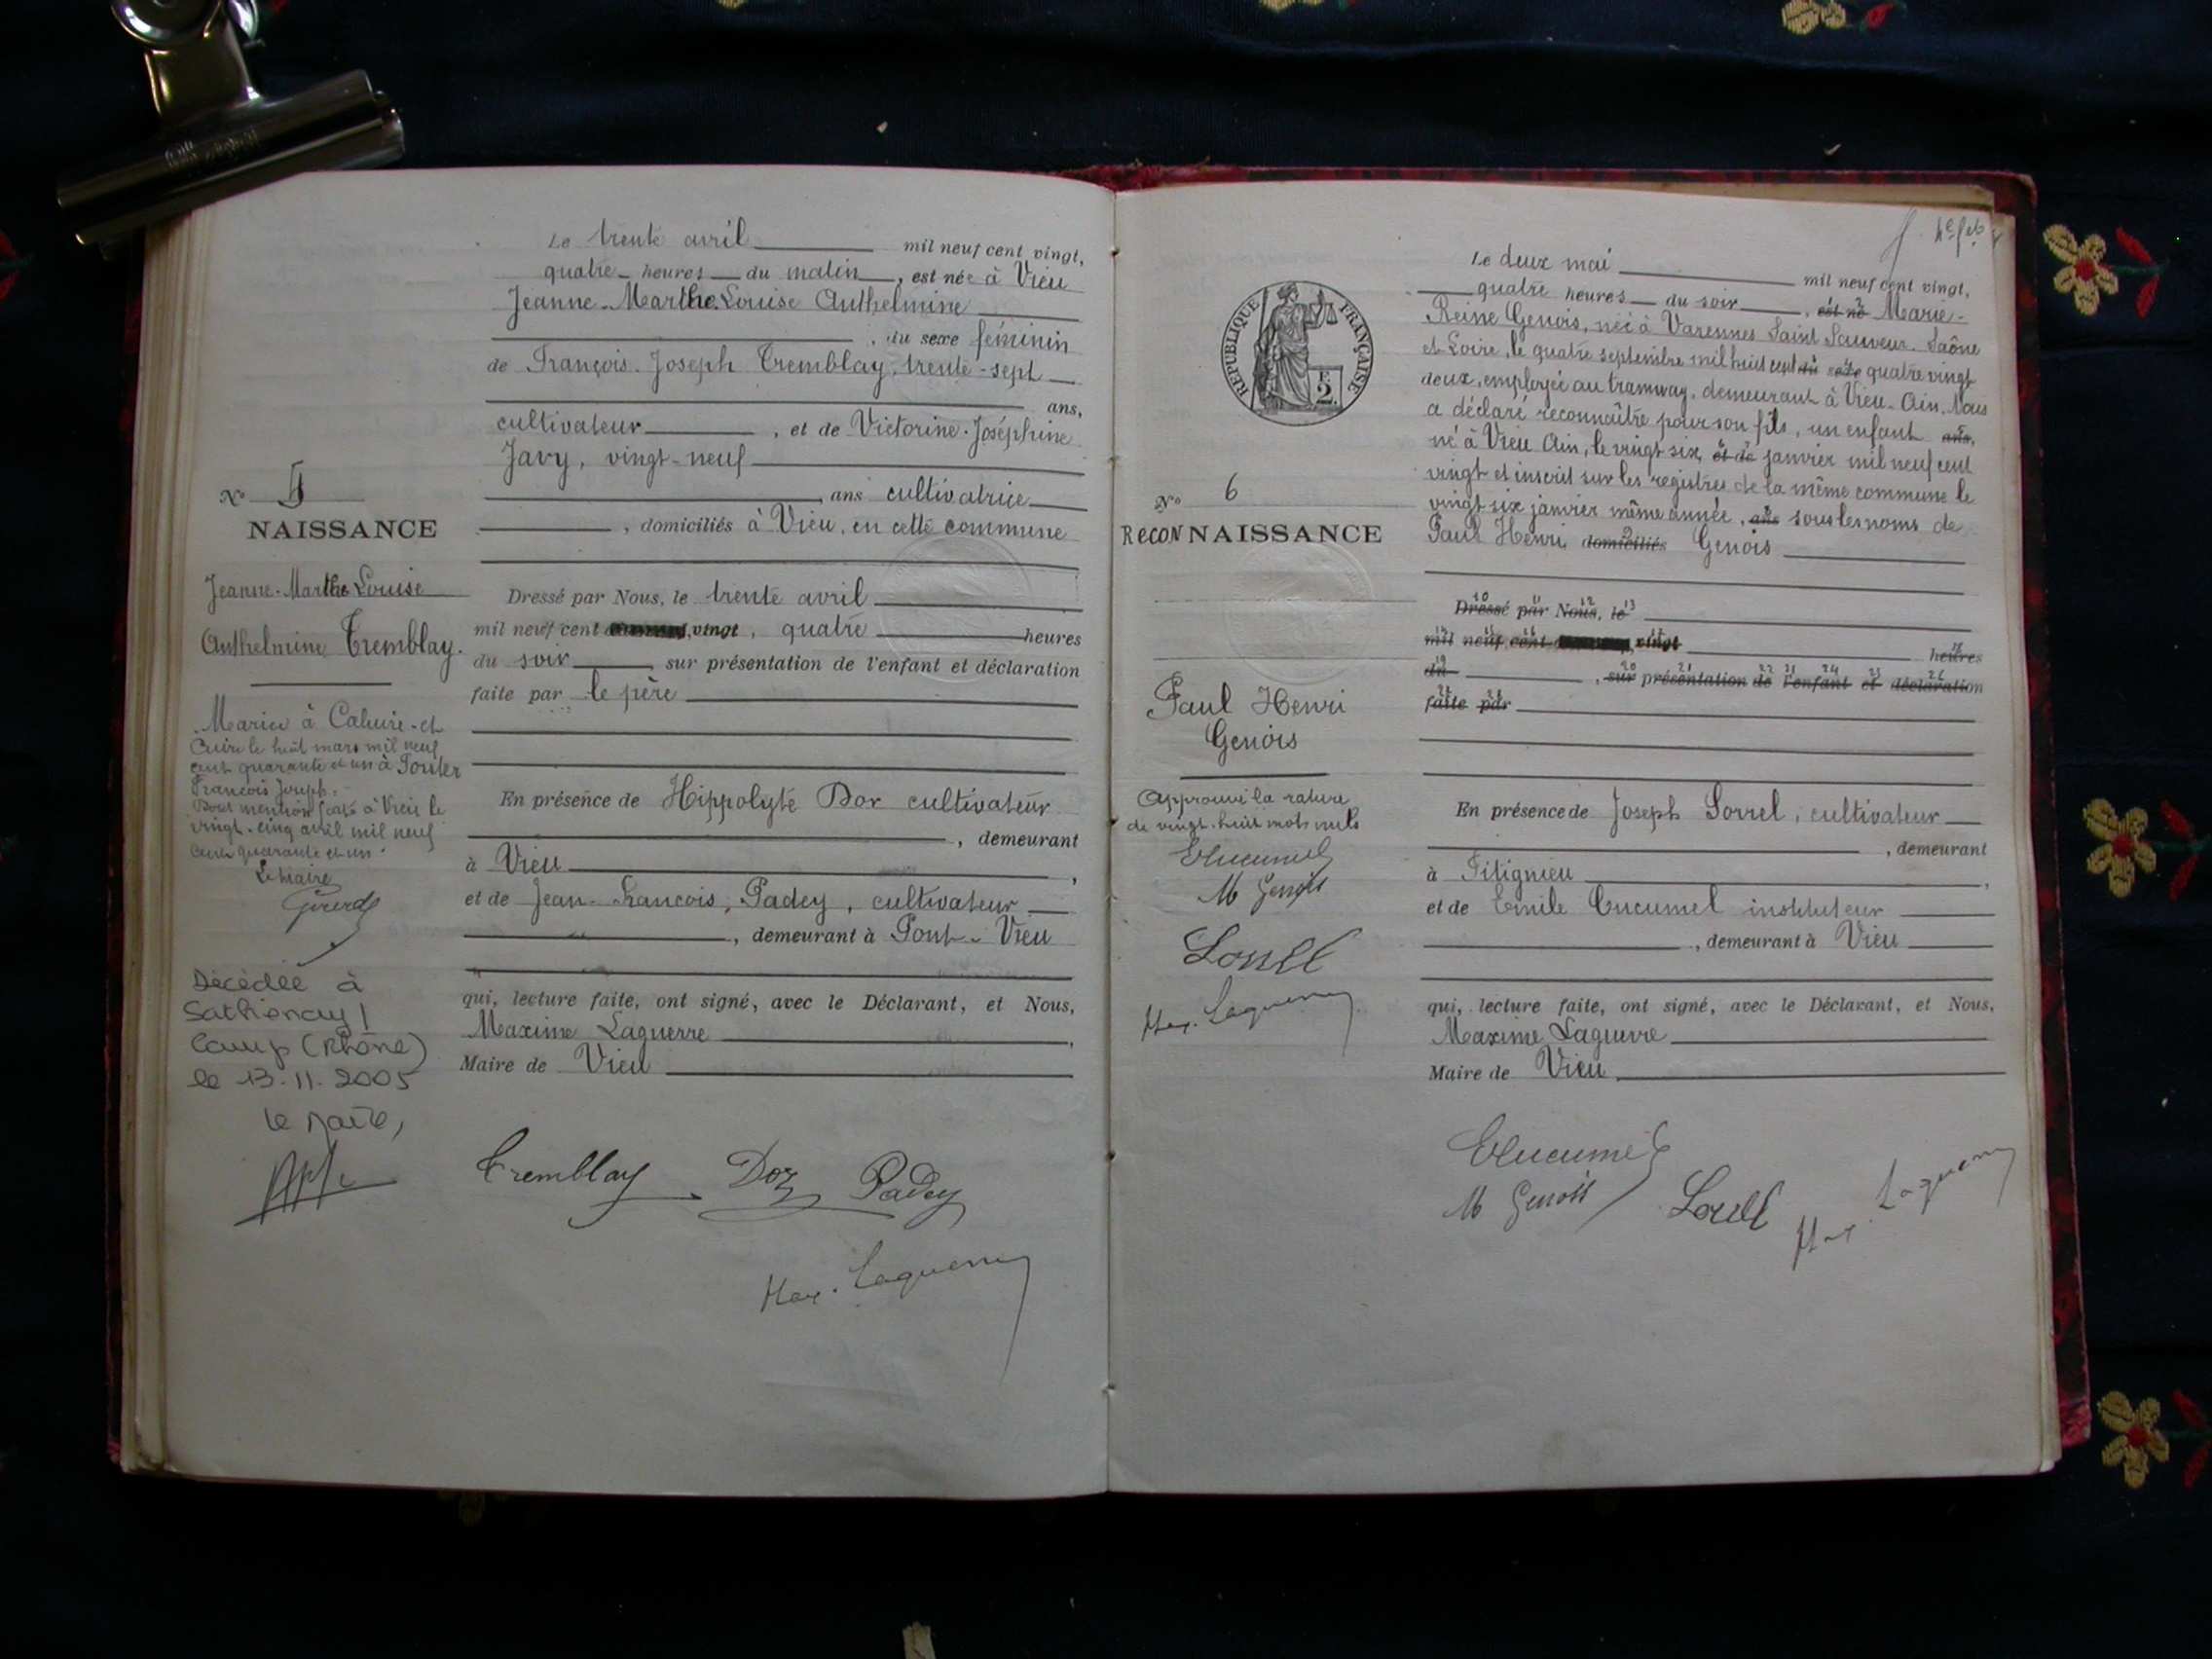 Le trente avril mil neuf cent vingt,
quatre heures du matin, est née à Vieu
Jeanne-Marthe Louise Anthelmine
, du sexe féminin
de François-Joseph Tremblay, trente-sept
ans,
cultivateur, et de Victorine-Joséphine
Javy, vingt-neuf
ans cultivatrice
, domiciliés à Vieu, en cette commune
N° 5
NAISSANCE
Jeanne-Marthe Louise
Anthelmine Tremblay.
Dressé par Nous, le trente avril
mil neuf cent vingt, quatre heures
du soir, sur présentation de l'enfant et déclaration
faite par le père
Mariée à Caluire-et
Cuire le huit mars mil neuf
cent quarante et un à
François Joseph.
Dont mention faite à Vieu le
vingt-cinq avril mil neuf
cent quarante et un.
Le Maire
En présence de Hippolyte Dor cultivateur
, demeurant
à Vieu,
et de Jean-François, Padey, cultivateur
, demeurant à Pont-Vieu
qui, lecture faite, ont signé, avec le Déclarant, et Nous,
Maxime Laguerre,
Maire de Vieu
Décédée à
Sathonay
Camp (Rhône)
le 13.11.2005
Le Maire,
Tremblay Dor Padey
Max. Laguerre
RÉPUBLIQUE FRANÇAISE
F.
2.
Le deux mai mil neuf cent vingt,
quatre heures du soir, est né Marie-
Reine Genois, née à Varennes Saint Sauveur. Saône
et Loire, le quatre septembre mil huit cent du sexe quatre vingt
deux, employée au tramway, demeurant à Vieu-Ain. Nous
a déclaré reconnaître pour son fils, un enfant ans,
né à Vieu Ain, le vingt six, et de janvier mil neuf cent
vingt et inscrit sur les registres de la même commune le
vingt six janvier même année, ans sous les noms de
Paul Henri domiciliés Genois
N° 6
RECONNAISSANCE
Paul Henri
Genois
Dressé par Nous, le
mil neuf cent vingt heures
du, sur présentation de l'enfant et déclaration
faite par
Approuvé la rature
de vingt-huit mots nuls
ECucumel
M Genois
Sorrel
Max. Laguerre
En présence de Joseph Sorrel, cultivateur
, demeurant
à Fitignieu,
et de Emile Cucumel instituteur
, demeurant à Vieu
qui, lecture faite, ont signé, avec le Déclarant, et Nous,
Maxime Laguerre
Maire de Vieu
ECucumel
M Genois Sorrel Max. Laguerre